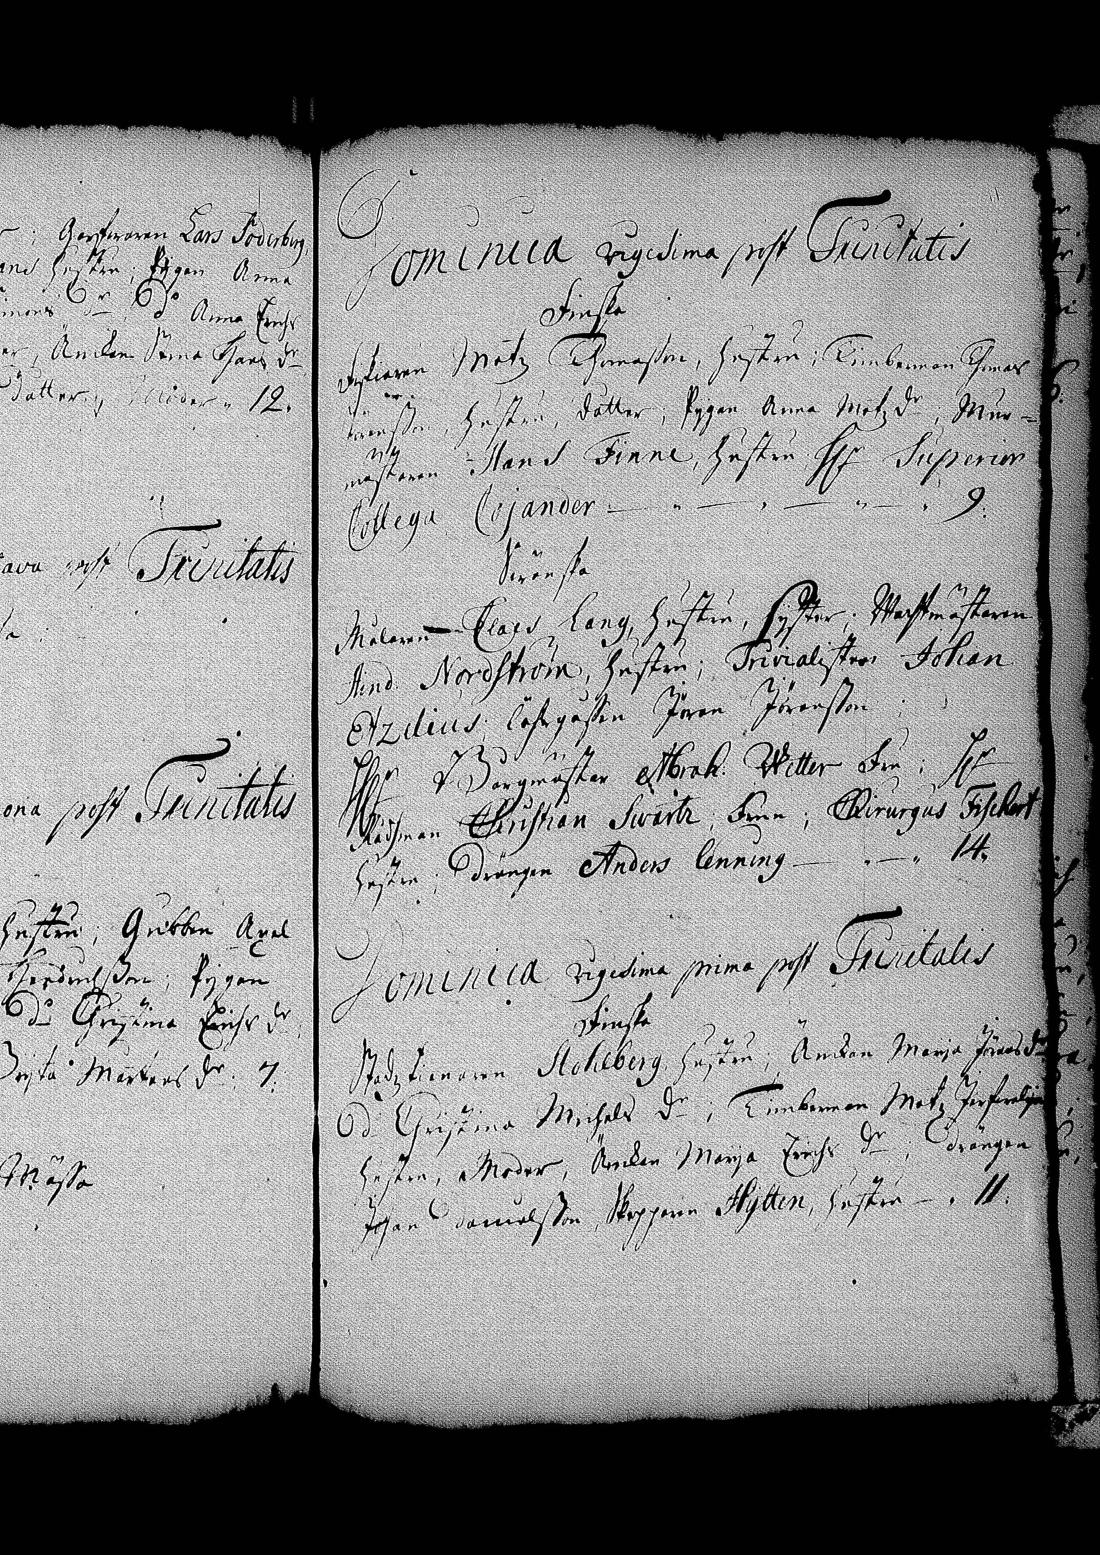 Garfvaren Lars Söderberg,
hustru; Pygan Anna
dr; do Anna Erichs
dr
Dotter, Moder " 12.
post Trinitatis
post Trinitatis
hustru; Gubben Axel
Pygan
do Christina Erichs dr;
Mårtens dr. 7.
Mässa
Dominica vigesima post Trinitatis
Finska
Matz Thomasson, hustru; Timberman Thomas
hustru, dotter; Pygan Anna Matz dr; Mur-
mästaren Hans Finne, hustru Hr Superior
Collega Cojander — " — " — " — " 9.
Svenska
Målaren Claes Lang, hustru, Syster; Wachtmästaren
Hind. Nordström, hustru; Trivialisten Johan
Azelius; Lähregossen Jöran Jöransson
Hr Borgmästar Abrah. Witter Fru; Hr
Rådhman Christian Swartz, Frun; Chirurgus Fischert
hustru; drängen Anders Lenning — " — " 14.
Dominica vigesima prima post Trinitatis
Finska
Stoltzberg, hustru; Änckan Marja Jörans dr
do Christina Michels dr; Timberman Matz
hustru, Moder, Änckan Marja Erichs dr; drängen
Johan Danielsson, Skepparen Hytten, hustru — " 11.